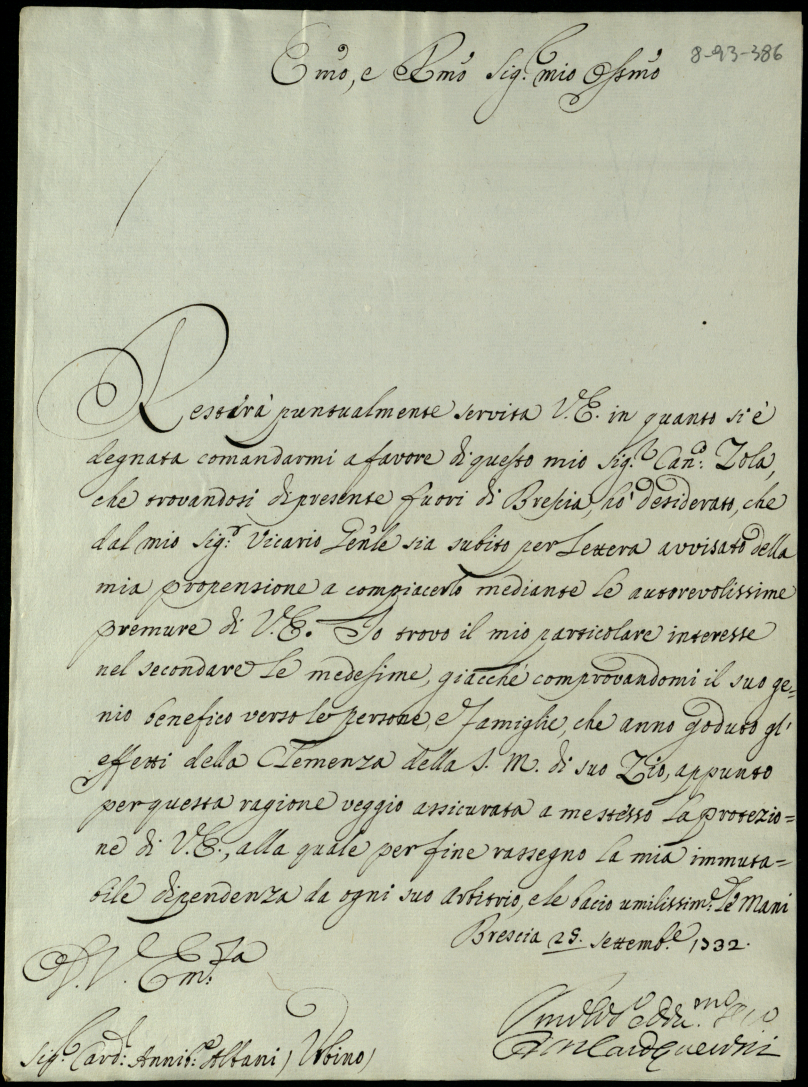 8-93-386
Emo, e Rmo Sig.r mio Ossmo
Resterà puntualmente servita V.E. in quanto si è
degnata comandarmi a favore di questo mio Sig.r Can.o Zola,
che trovandosi di presente fuori di Brescia, hò desiderato, che
dal mio Sig.r Vicario Gen'le sia subito per Lettera avvisato della
mia propensione a compiacerlo mediante le autorevolissime
premure di V.E. Io trovo il mio particolare interesse
nel secondare le medesime, giacchè comprovandomi il suo ge=
nio benefico verso le persone, e famiglie, che anno goduto gl'
effetti della Clemenza della S. M. di suo Zio, appunto
per questa ragione veggio assicurata a me stesso la protezio=
ne di V.E., alla quale per fine rassegno la mia immuta=
bile dipendenza da ogni suo Arbitrio, e le bacio umilissim.e le Mani
Brescia 25. Settemb.e 1732.
D. V. Em.za
Sig.r Card. Annib.e Albani / Urbino /